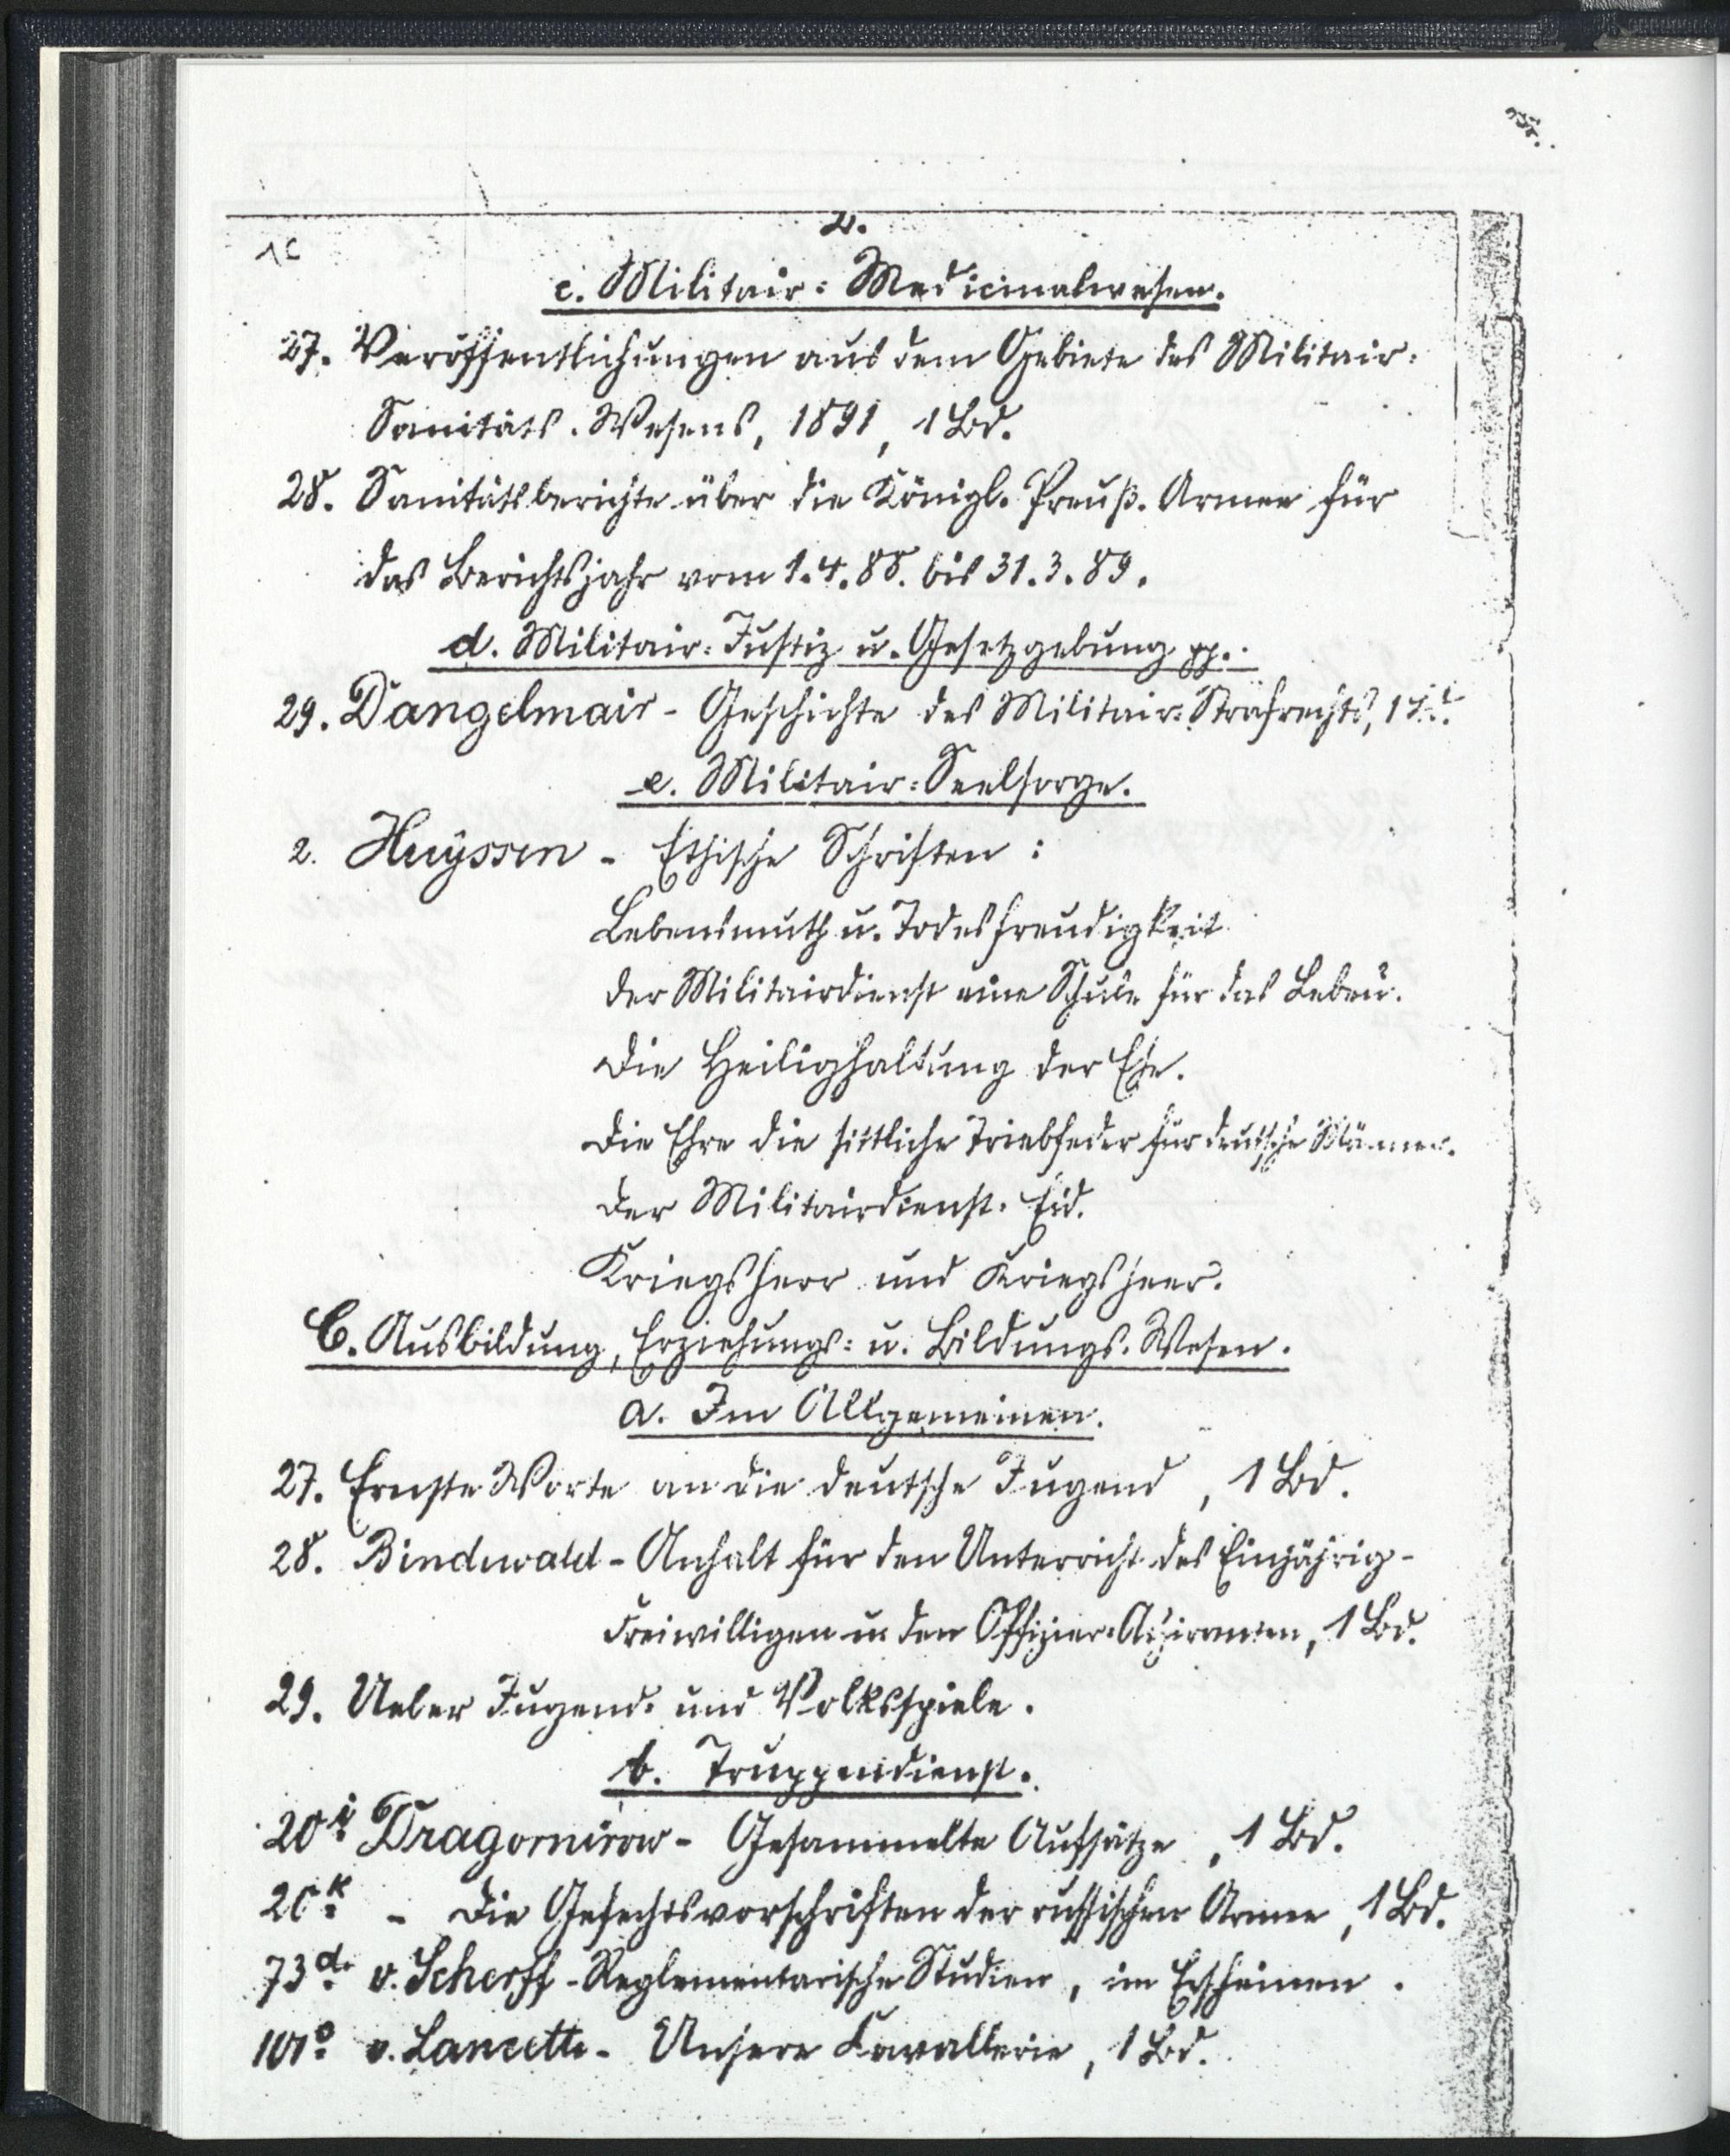 2.
1c
c. Militair-Medicinalwesen.
27. Veröffentlichungen aus dem Gebiete des Militair-
Sanitäts-Wesens, 1891, 1 Bd.
28. Sanitätsberichte über die Königl. Preuß. Armee für
das Berichtsjahr vom 1.4.88. bis 31.3.89.
d. Militair-Justiz u. Gesetzgebung pp.
29. Dangelmair - Geschichte des Militair-Strafrechts, 1 Bd.
e. Militair-Seelsorge.
2. Huyssen - Ethische Schriften:
Lebensmuth u. Todesfreudigkeit
der Militairdienst eine Schule für das Leben.
Die Heilighaltung der Ehe.
Die Ehre die sittliche Triebfeder für deutsche Männer.
Der Militairdienst-Eid.
Kriegsherr und Kriegsheer.
C. Ausbildung, Erziehungs- u. Bildungs-Wesen.
a. Im Allgemeinen.
27. Ernste Worte an die deutsche Jugend, 1 Bd.
28. Bindewald - Anhalt für den Unterricht des Einjährig-
Freiwilligen u. den Offizier-Aspiranten, 1 Bd.
29. Ueber Jugend- und Volksspiele.
b. Truppendienst.
20i. Dragomirow - Gesammelte Aufsätze, 1 Bd.
20k. - Die Gefechtsvorschriften der russischen Armee, 1 Bd.
73d. v. Scherff - Reglementarische Studien, im Erscheinen.
v. - Unsere Kavallerie, 1 Bd.